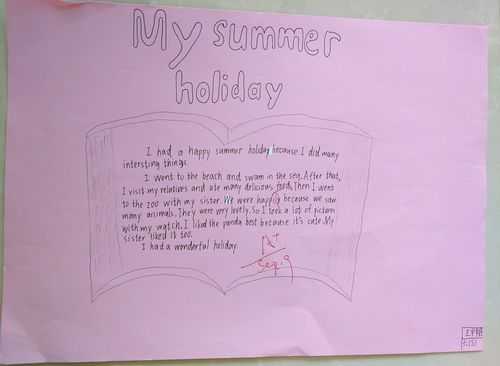 My summer
holiday
I had a happy summer holiday because I did many
intersting things.
I went to the beach and swam in the sea. After that,
I visit my relatives and ate many delicious foods. Then I went
to the zoo with my sister. We were happily because we saw
many animals. They were very lovely. So I took a lot of pictures
with my watch. I liked the panda best because it's cute. My
sister liked it too.
I had a wonderful holiday.
A+
Sep. 9